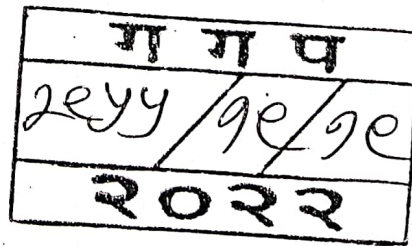 ग ग प
२९५५/१९/१९
२०२२